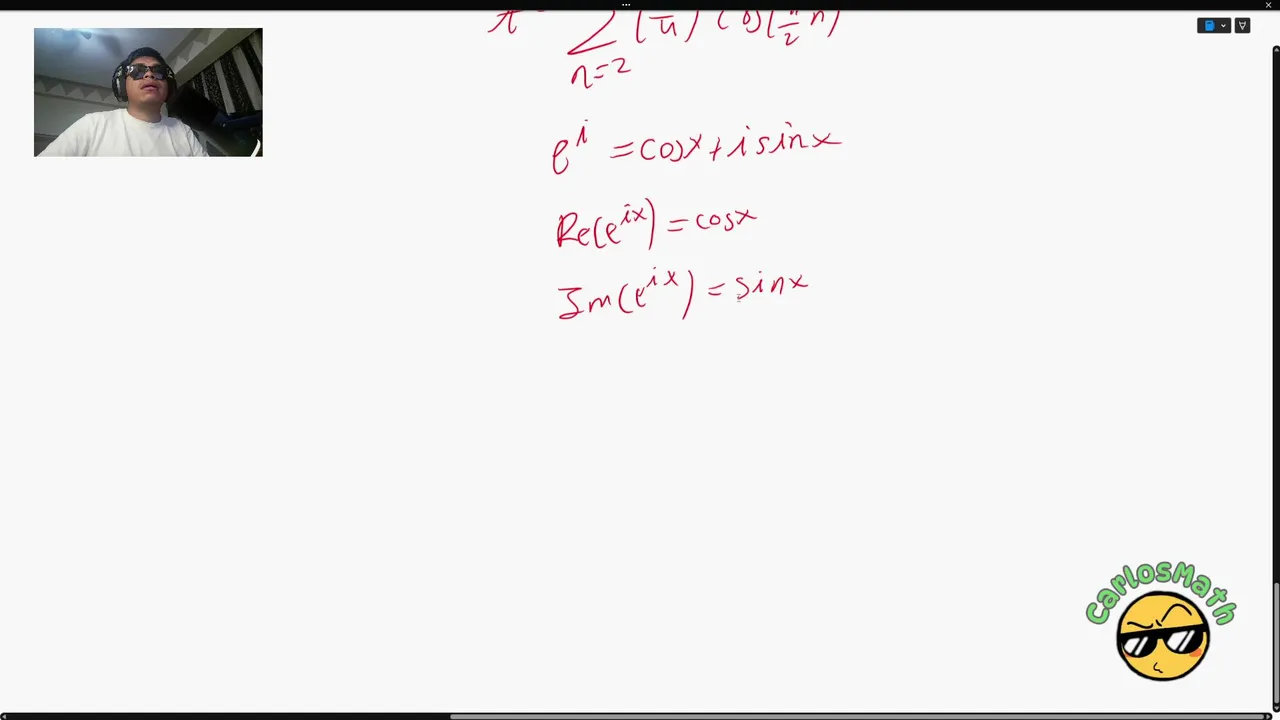 n=2
e^i = cosx + i sinx
Re(e^{ix}) = cosx
Im(e^{ix}) = sinx
CarlosMath